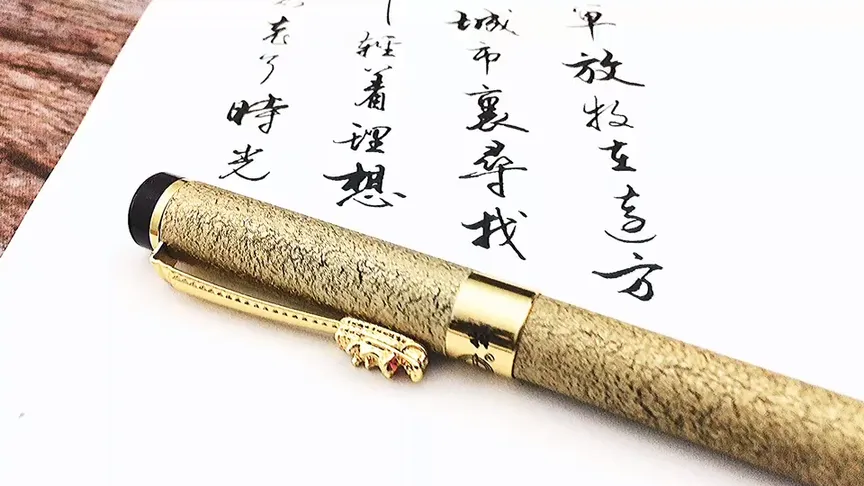 放牧在遠方
城市裏尋找
輕着理想
老了時光